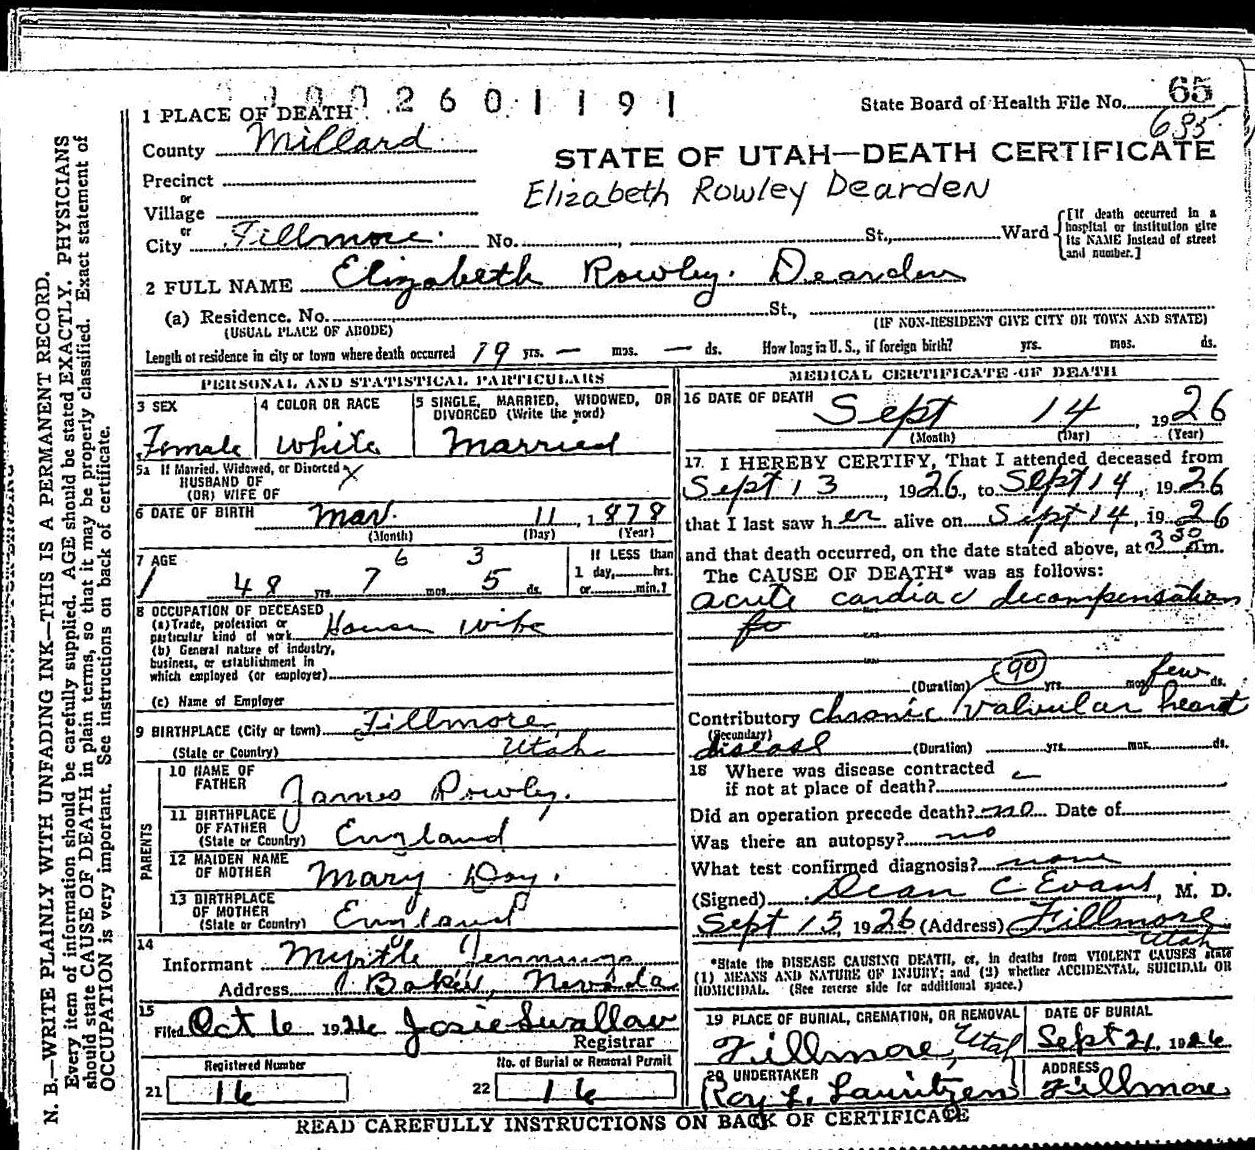 2 6 0 1 1 9 1
State Board of Health File No. 65
635
1 PLACE OF DEATH
County Millard
STATE OF UTAH—DEATH CERTIFICATE
Precinct
Elizabeth Rowley Dearden
or
Village
or
City Fillmore. No. , St., Ward
[If death occurred in a hospital or institution give its NAME instead of street and number.]
2 FULL NAME Elizabeth Rowley. Dearden
(a) Residence. No. St.,
(USUAL PLACE OF ABODE) (IF NON-RESIDENT GIVE CITY OR TOWN AND STATE)
Length of residence in city or town where death occurred 19 yrs. — mos. — ds. How long in U. S., if foreign birth? yrs. mos. ds.
PERSONAL AND STATISTICAL PARTICULARS
3 SEX
Female
4 COLOR OR RACE
White
5 SINGLE, MARRIED, WIDOWED, OR DIVORCED (Write the word)
Married
5a If Married, Widowed, or Divorced X
HUSBAND OF
(OR) WIFE OF
6 DATE OF BIRTH Mar. 11, 1878
(Month) (Day) (Year)
7 AGE 6 3
48 yrs. 7 mos. 5 ds.
If LESS than
1 day, hrs.
or min.?
8 OCCUPATION OF DECEASED
(a) Trade, profession or
particular kind of work House wife
(b) General nature of industry,
business, or establishment in
which employed (or employer)
(c) Name of Employer
9 BIRTHPLACE (City or town) Fillmore,
(State or Country) Utah
PARENTS
10 NAME OF
FATHER James Rowley.
11 BIRTHPLACE
OF FATHER
(State or Country) England
12 MAIDEN NAME
OF MOTHER Mary Day.
13 BIRTHPLACE
OF MOTHER
(State or Country) England
14
Informant Myrtle Jennings
Address Baker, Nevada
15
Filed Oct 6 1926 Josie Swallow
Registrar
Registered Number
21 16
No. of Burial or Removal Permit
22 16
MEDICAL CERTIFICATE OF DEATH
16 DATE OF DEATH Sept 14, 1926
(Month) (Day) (Year)
17. I HEREBY CERTIFY, That I attended deceased from
Sept 13, 1926, to Sept 14, 1926
that I last saw her alive on Sept 14, 1926
and that death occurred, on the date stated above, at 3 30 Am.
The CAUSE OF DEATH* was as follows:
acute cardiac decompensation
(Duration) 90 yrs. mos. few ds.
Contributory chronic valvular heart
(Secondary)
disease (Duration) yrs. mos. ds.
18 Where was disease contracted
if not at place of death?
Did an operation precede death? no Date of
Was there an autopsy? no
What test confirmed diagnosis? none
(Signed) Dean C Evans, M. D.
Sept 15 1926 (Address) Fillmore
Utah
*State the DISEASE CAUSING DEATH, or, in deaths from VIOLENT CAUSES state
(1) MEANS AND NATURE OF INJURY; and (2) whether ACCIDENTAL, SUICIDAL OR
HOMICIDAL. (See reverse side for additional space.)
19 PLACE OF BURIAL, CREMATION, OR REMOVAL
Fillmore, Utah
DATE OF BURIAL
Sept 21. 1926
20 UNDERTAKER
Roy L. Lauritzen
ADDRESS
Fillmore
READ CAREFULLY INSTRUCTIONS ON BACK OF CERTIFICATE
N. B.—WRITE PLAINLY WITH UNFADING INK—THIS IS A PERMANENT RECORD.
Every item of information should be carefully supplied. AGE should be stated EXACTLY. PHYSICIANS
should state CAUSE OF DEATH in plain terms, so that it may be properly classified. Exact statement of
OCCUPATION is very important. See instructions on back of certificate.